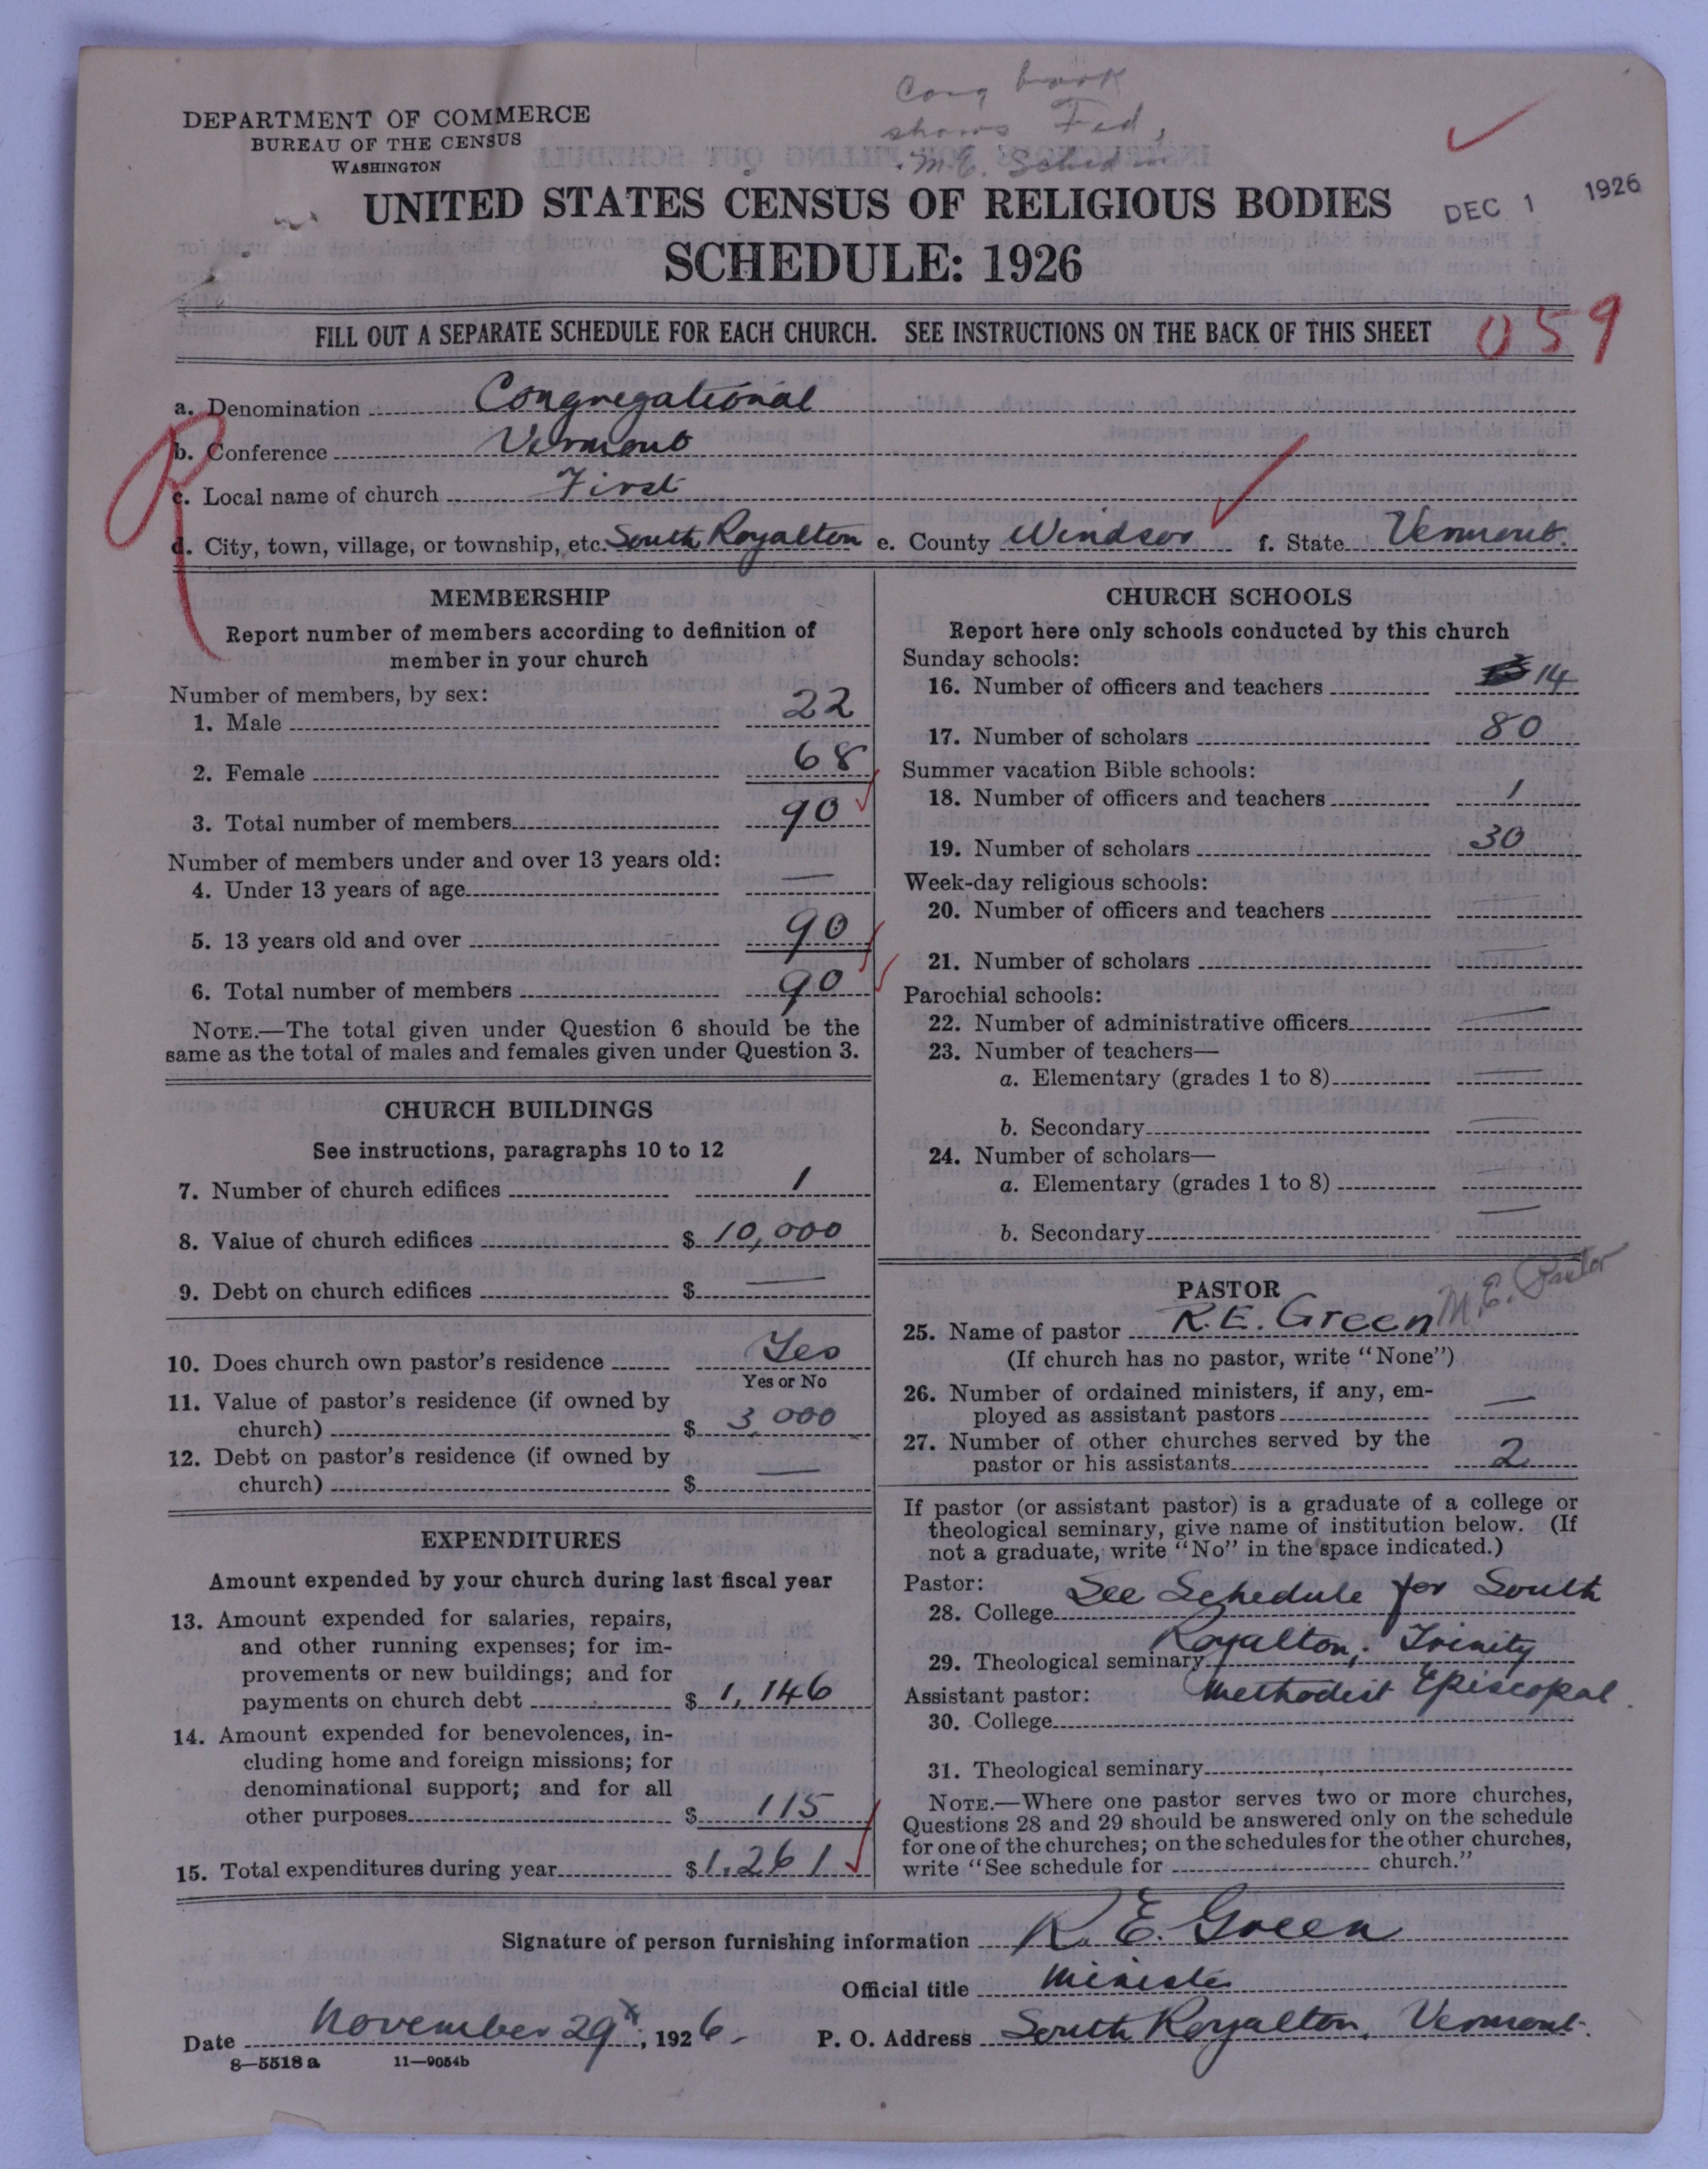 Cong book
shows Fed,
M.E. Sched in
DEPARTMENT OF COMMERCE
BUREAU OF THE CENSUS
WASHINGTON
UNITED STATES CENSUS OF RELIGIOUS BODIES
DEC 1 1926
SCHEDULE: 1926
FILL OUT A SEPARATE SCHEDULE FOR EACH CHURCH. SEE INSTRUCTIONS ON THE BACK OF THIS SHEET
059
a. Denomination Congregational
b. Conference Vermont
c. Local name of church First
d. City, town, village, or township, etc. South Royalton e. County Windsor f. State Vermont.
R
MEMBERSHIP
Report number of members according to definition of
member in your church
Number of members, by sex:
1. Male 22
2. Female 68
3. Total number of members 90
Number of members under and over 13 years old:
4. Under 13 years of age —
5. 13 years old and over 90
6. Total number of members 90
NOTE.—The total given under Question 6 should be the
same as the total of males and females given under Question 3.
CHURCH BUILDINGS
See instructions, paragraphs 10 to 12
7. Number of church edifices 1
8. Value of church edifices $ 10,000
9. Debt on church edifices $ —
10. Does church own pastor's residence Yes
Yes or No
11. Value of pastor's residence (if owned by
church) $ 3 000
12. Debt on pastor's residence (if owned by
church) $ —
EXPENDITURES
Amount expended by your church during last fiscal year
13. Amount expended for salaries, repairs,
and other running expenses; for im-
provements or new buildings; and for
payments on church debt $ 1,146
14. Amount expended for benevolences, in-
cluding home and foreign missions; for
denominational support; and for all
other purposes $ 115
15. Total expenditures during year $ 1.261
CHURCH SCHOOLS
Report here only schools conducted by this church
Sunday schools:
16. Number of officers and teachers 14
17. Number of scholars 80
Summer vacation Bible schools:
18. Number of officers and teachers 1
19. Number of scholars 30
Week-day religious schools:
20. Number of officers and teachers —
21. Number of scholars —
Parochial schools:
22. Number of administrative officers —
23. Number of teachers—
a. Elementary (grades 1 to 8) —
b. Secondary —
24. Number of scholars—
a. Elementary (grades 1 to 8) —
b. Secondary —
PASTOR
25. Name of pastor R. E. Green M.E. Pastor
(If church has no pastor, write "None")
26. Number of ordained ministers, if any, em-
ployed as assistant pastors —
27. Number of other churches served by the
pastor or his assistants 2
If pastor (or assistant pastor) is a graduate of a college or
theological seminary, give name of institution below. (If
not a graduate, write "No" in the space indicated.)
Pastor:
28. College See Schedule for South
29. Theological seminary Royalton, Trinity
Assistant pastor: Methodist Episcopal.
30. College
31. Theological seminary
NOTE.—Where one pastor serves two or more churches,
Questions 28 and 29 should be answered only on the schedule
for one of the churches; on the schedules for the other churches,
write "See schedule for church."
Signature of person furnishing information R. E. Green
Official title Minister
Date November 29, 1926- P. O. Address South Royalton, Vermont.
8—5518 a 11—9054b